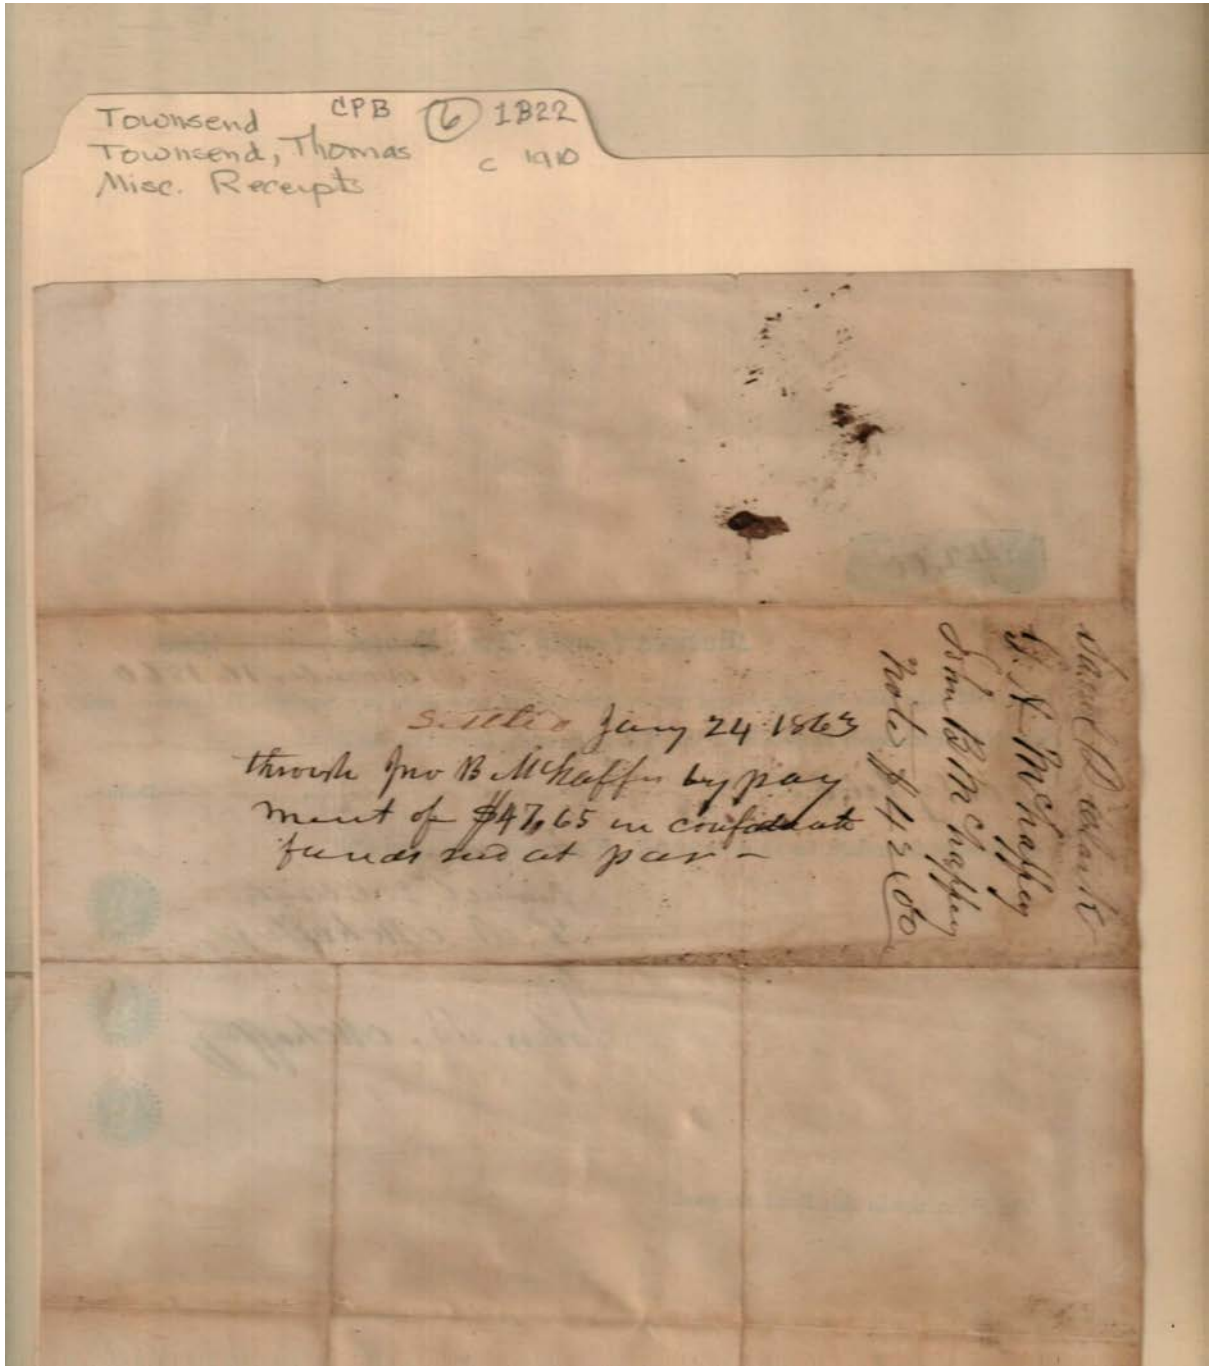 Townsend CPB 6 1822
Townsend, Thomas c 1910
Misc. Receipts
Settled Jany 24 1863
through Jno B McHaffey by pay
ment of $47,65 in confederate
funds at par -
Samuel
McHaffey
John B McHaffey
Note $42.00